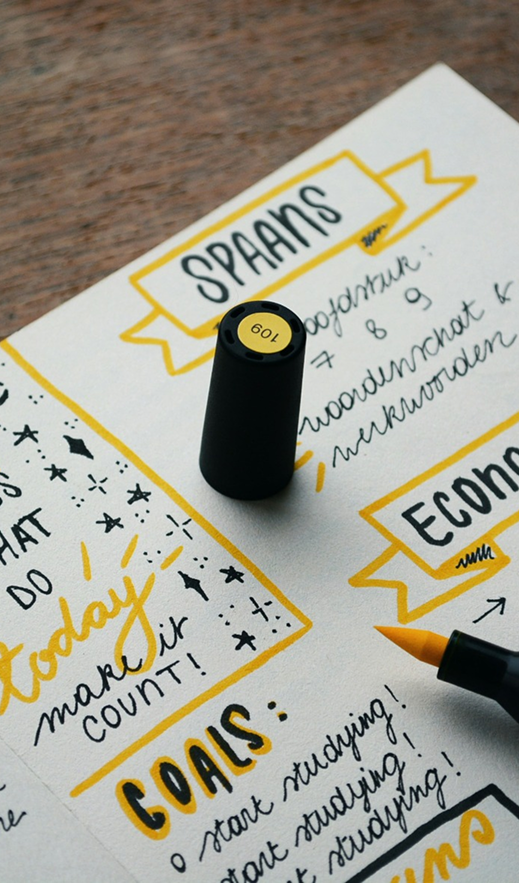 SPAANS
109
7 8 9
woordenschat &
werkwoorden
HAT
DO
today
make it
COUNT!
GOALS:
o start studying!
start studying!
studying!